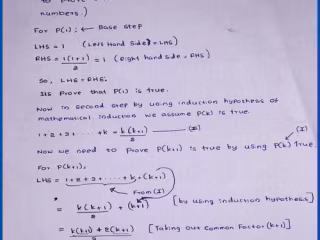 to prove
numbers.)
For P(1) ; ← Base step
LHS = 1 (Left Hand Side = LHS)
RHS = 1(1+1)/2 = 1 (Right hand side = RHS)
So, LHS = RHS.
Its Prove that P(1) is true.
Now in second step by using induction hypothesis of
mathematical induction we assume P(k) is true.
1+2+3+ ---- +k = k(k+1)/2 ——— (I)
Now we need to Prove P(k+1) is true by using P(k) true. (I)
For P(k+1),
LHS = 1+2+3+ ------ +k+(k+1)
From (I)
= k(k+1)/2 + (k+1) [by using induction hypothesis]
= k(k+1) + 2(k+1)/2 [Taking out Common Factor (k+1)]